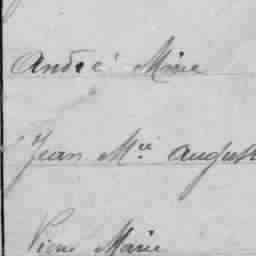 André Mme
Jean Mie August
Pierre Marie